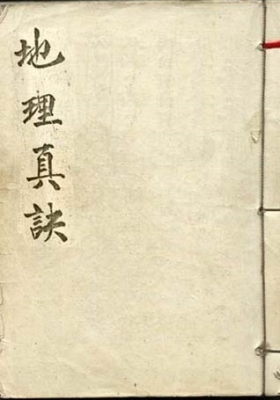 地理真訣